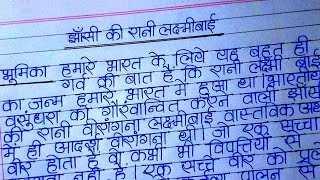 झाँसी की रानी लक्ष्मीबाई
भूमिका हमारे भारत के लिये यह बहुत ही
गर्व की बात है कि रानी लक्ष्मी बाई
का जन्म हमारे भारत में हुआ था। भारतीय
वसुंधरा को गौरवान्वित करने वाली झाँसी
की रानी वीरांगना लक्ष्मीबाई वास्तविक अर्थ
में ही आदर्श वीरांगना थी। जो एक सच्चा
वीर होता है वो कभी भी विपत्तियों से
नहीं है। एक सच्चे वीर को